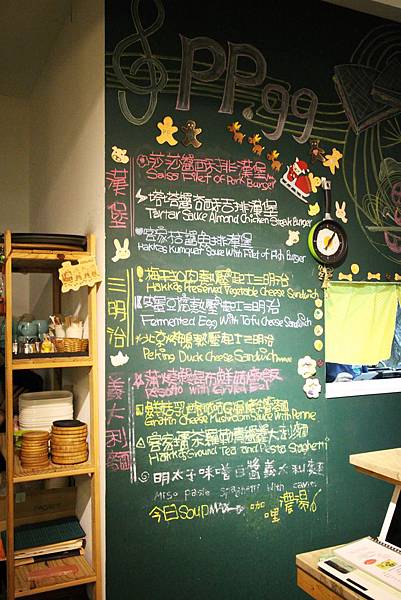 PP.99
漢堡
莎莎醬豬排漢堡
Salsa Filet of Pork Burger
塔塔醬
Tartar Sauce Almond Chicken Steak Burger
客家桔醬魚排漢堡
Hakkas Kumquat Sauce With Filet of Fish Burger
三明治
梅干扣肉熱壓起士三明治
Hakkas Preserved Vegetable Cheese Sandwich
熱壓起士三明治
Fermented Egg With Tofu Cheese Sandwich
北京烤鴨熱壓起士三明治
Peking Duck Cheese Sandwich
義大利麵
Risotto with
Gratin Cheese Mushroom Sauce With Penne
客家擂茶
Hakkas Ground Tea and Pesto Spaghetti
明太子味噌白醬義大利麵
Miso paste spaghetti with caviar
今日Soup
咖哩濃湯